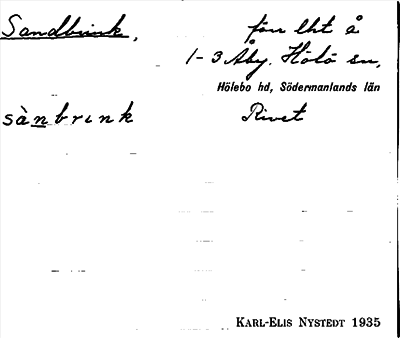 Sandbrink, förr lht å
1-3 Åby. Hölö sn,
Hölebo hd, Södermanlands län
sànbrink Rivet
KARL-ELIS NYSTEDT 1935